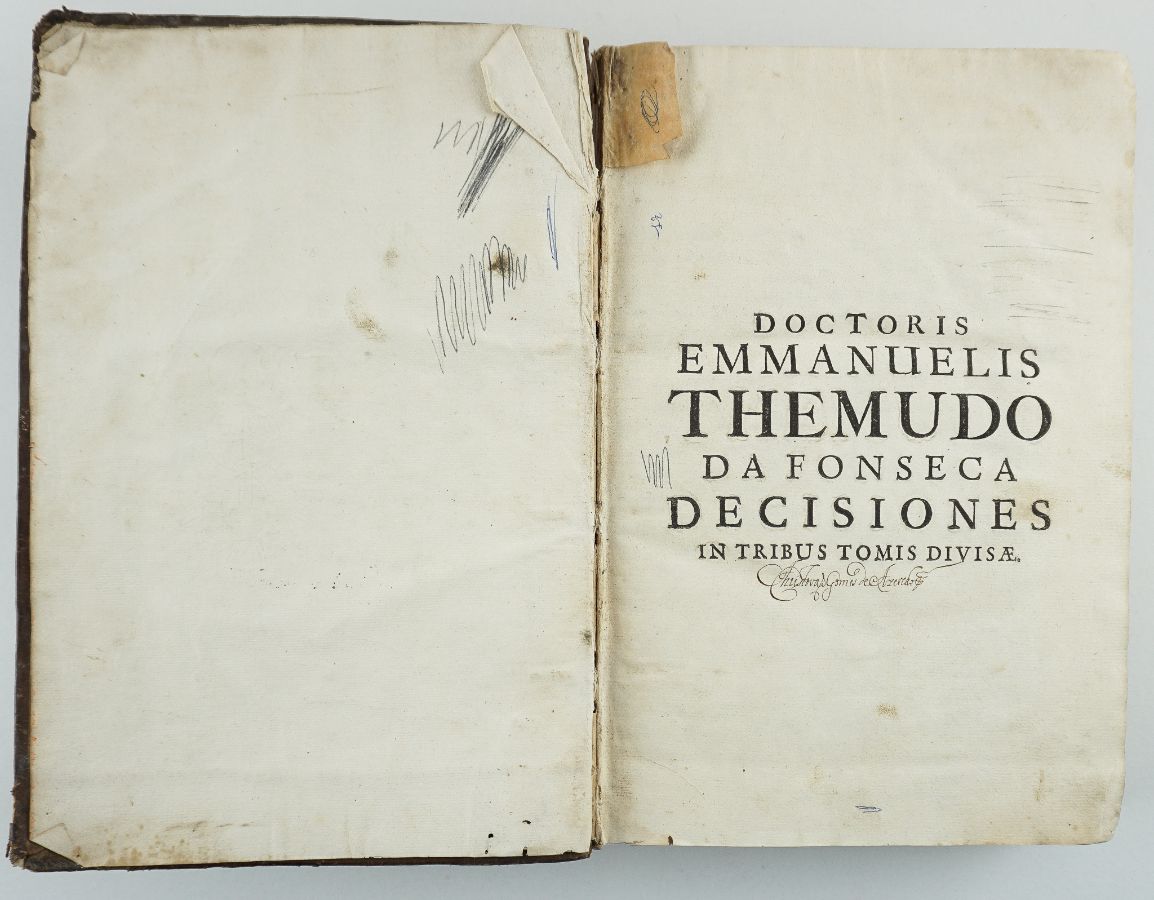 DOCTORIS
EMMANUELIS
THEMUDO
DA FONSECA
DECISIONES
IN TRIBUS TOMIS DIVISÆ.
Gomes de Azevedo